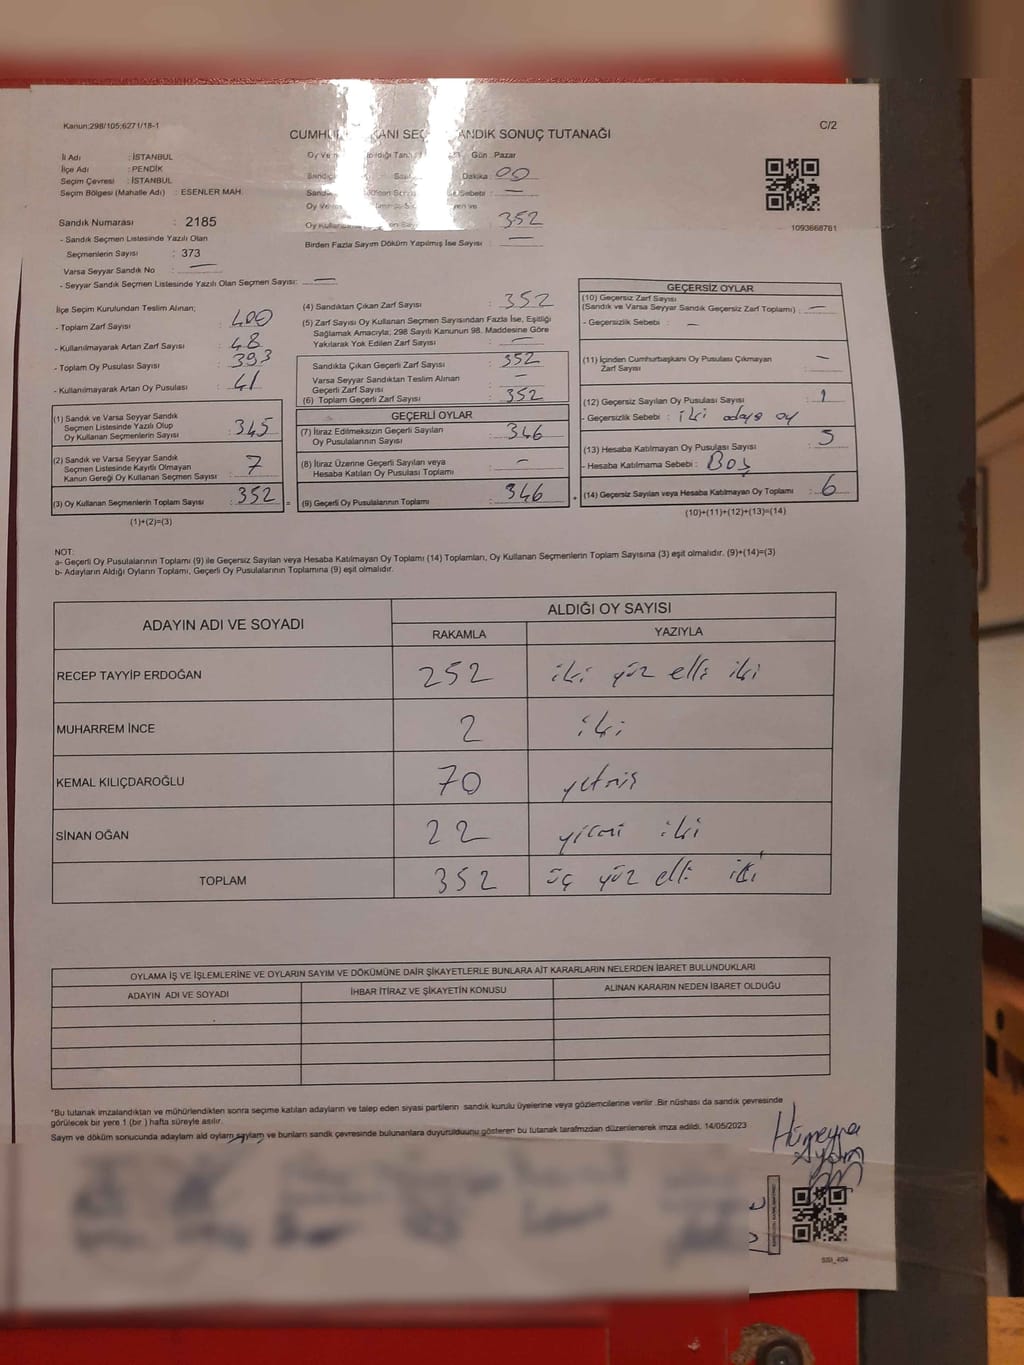 Kanun:298/105;6271/18-1
C/2
CUMHU KANI SEÇ ANDIK SONUÇ TUTANAĞI
İl Adı : İSTANBUL
İlçe Adı : PENDİK
Seçim Çevresi : İSTANBUL
Seçim Bölgesi (Mahalle Adı) : ESENLER MAH.
Oy Ve Gün : Pazar
Dakika : 00
Sebebi : —
352
Birden Fazla Sayım Döküm Yapılmış İse Sayısı : —
1093668761
Sandık Numarası : 2185
- Sandık Seçmen Listesinde Yazılı Olan
Seçmenlerin Sayısı : 373
Varsa Seyyar Sandık No : —
- Seyyar Sandık Seçmen Listesinde Yazılı Olan Seçmen Sayısı: —
İlçe Seçim Kurulundan Teslim Alınan;
- Toplam Zarf Sayısı : 400
- Kullanılmayarak Artan Zarf Sayısı : 48
- Toplam Oy Pusulası Sayısı : 393
- Kullanılmayarak Artan Oy Pusulası : 41
(1) Sandık ve Varsa Seyyar Sandık
Seçmen Listesinde Yazılı Olup
Oy Kullanan Seçmenlerin Sayısı : 345
(2) Sandık ve Varsa Seyyar Sandık
Seçmen Listesinde Kayıtlı Olmayan
Kanun Gereği Oy Kullanan Seçmen Sayısı : 7
(3) Oy Kullanan Seçmenlerin Toplam Sayısı : 352 =
(1)+(2)=(3)
(4) Sandıktan Çıkan Zarf Sayısı : 352
(5) Zarf Sayısı Oy Kullanan Seçmen Sayısından Fazla İse, Eşitliği
Sağlamak Amacıyla; 298 Sayılı Kanunun 98. Maddesine Göre
Yakılarak Yok Edilen Zarf Sayısı : —
Sandıkta Çıkan Geçerli Zarf Sayısı : 352
Varsa Seyyar Sandıktan Teslim Alınan
Geçerli Zarf Sayısı : —
(6) Toplam Geçerli Zarf Sayısı : 352
GEÇERLİ OYLAR
(7) İtiraz Edilmeksizin Geçerli Sayılan
Oy Pusulalarının Sayısı : 346
(8) İtiraz Üzerine Geçerli Sayılan veya
Hesaba Katılan Oy Pusulası Toplamı : —
(9) Geçerli Oy Pusulalarının Toplamı : 346 +
GEÇERSİZ OYLAR
(10) Geçersiz Zarf Sayısı
(Sandık ve Varsa Seyyar Sandık Geçersiz Zarf Toplamı) : —
- Geçersizlik Sebebi : —
(11) İçinden Cumhurbaşkanı Oy Pusulası Çıkmayan
Zarf Sayısı : —
(12) Geçersiz Sayılan Oy Pusulası Sayısı : 1
- Geçersizlik Sebebi : iki adaya oy
(13) Hesaba Katılmayan Oy Pusulası Sayısı : 5
- Hesaba Katılmama Sebebi : Boş
(14) Geçersiz Sayılan veya Hesaba Katılmayan Oy Toplamı : 6
(10)+(11)+(12)+(13)=(14)
NOT:
a- Geçerli Oy Pusulalarının Toplamı (9) ile Geçersiz Sayılan veya Hesaba Katılmayan Oy Toplamı (14) Toplamları, Oy Kullanan Seçmenlerin Toplam Sayısına (3) eşit olmalıdır. (9)+(14)=(3)
b- Adayların Aldığı Oyların Toplamı, Geçerli Oy Pusulalarının Toplamına (9) eşit olmalıdır.
ADAYIN ADI VE SOYADI ALDIĞI OY SAYISI
RAKAMLA YAZIYLA
RECEP TAYYİP ERDOĞAN 252 iki yüz elli iki
MUHARREM İNCE 2 iki
KEMAL KILIÇDAROĞLU 70 yetmiş
SİNAN OĞAN 22 yirmi iki
TOPLAM 352 üç yüz elli iki
OYLAMA İŞ VE İŞLEMLERİNE VE OYLARIN SAYIM VE DÖKÜMÜNE DAİR ŞİKAYETLERLE BUNLARA AİT KARARLARIN NELERDEN İBARET BULUNDUKLARI
ADAYIN ADI VE SOYADI İHBAR İTİRAZ VE ŞİKAYETİN KONUSU ALINAN KARARIN NEDEN İBARET OLDUĞU
*Bu tutanak imzalandıktan ve mühürlendikten sonra seçime katılan adayların ve talep eden siyasi partilerin sandık kurulu üyelerine veya gözlemcilerine verilir. Bir nüshası da sandık çevresinde
görülecek bir yere 1 (bir ) hafta süreyle asılır.
Sayım ve döküm sonucunda adayların ald oyların sayıları ve bunların sandık çevresinde bulunanlara duyurulduunu gösteren bu tutanak tarafmzdan düzenlenerek imza edildi. 14/05/2023
Hümeyra
Aydın